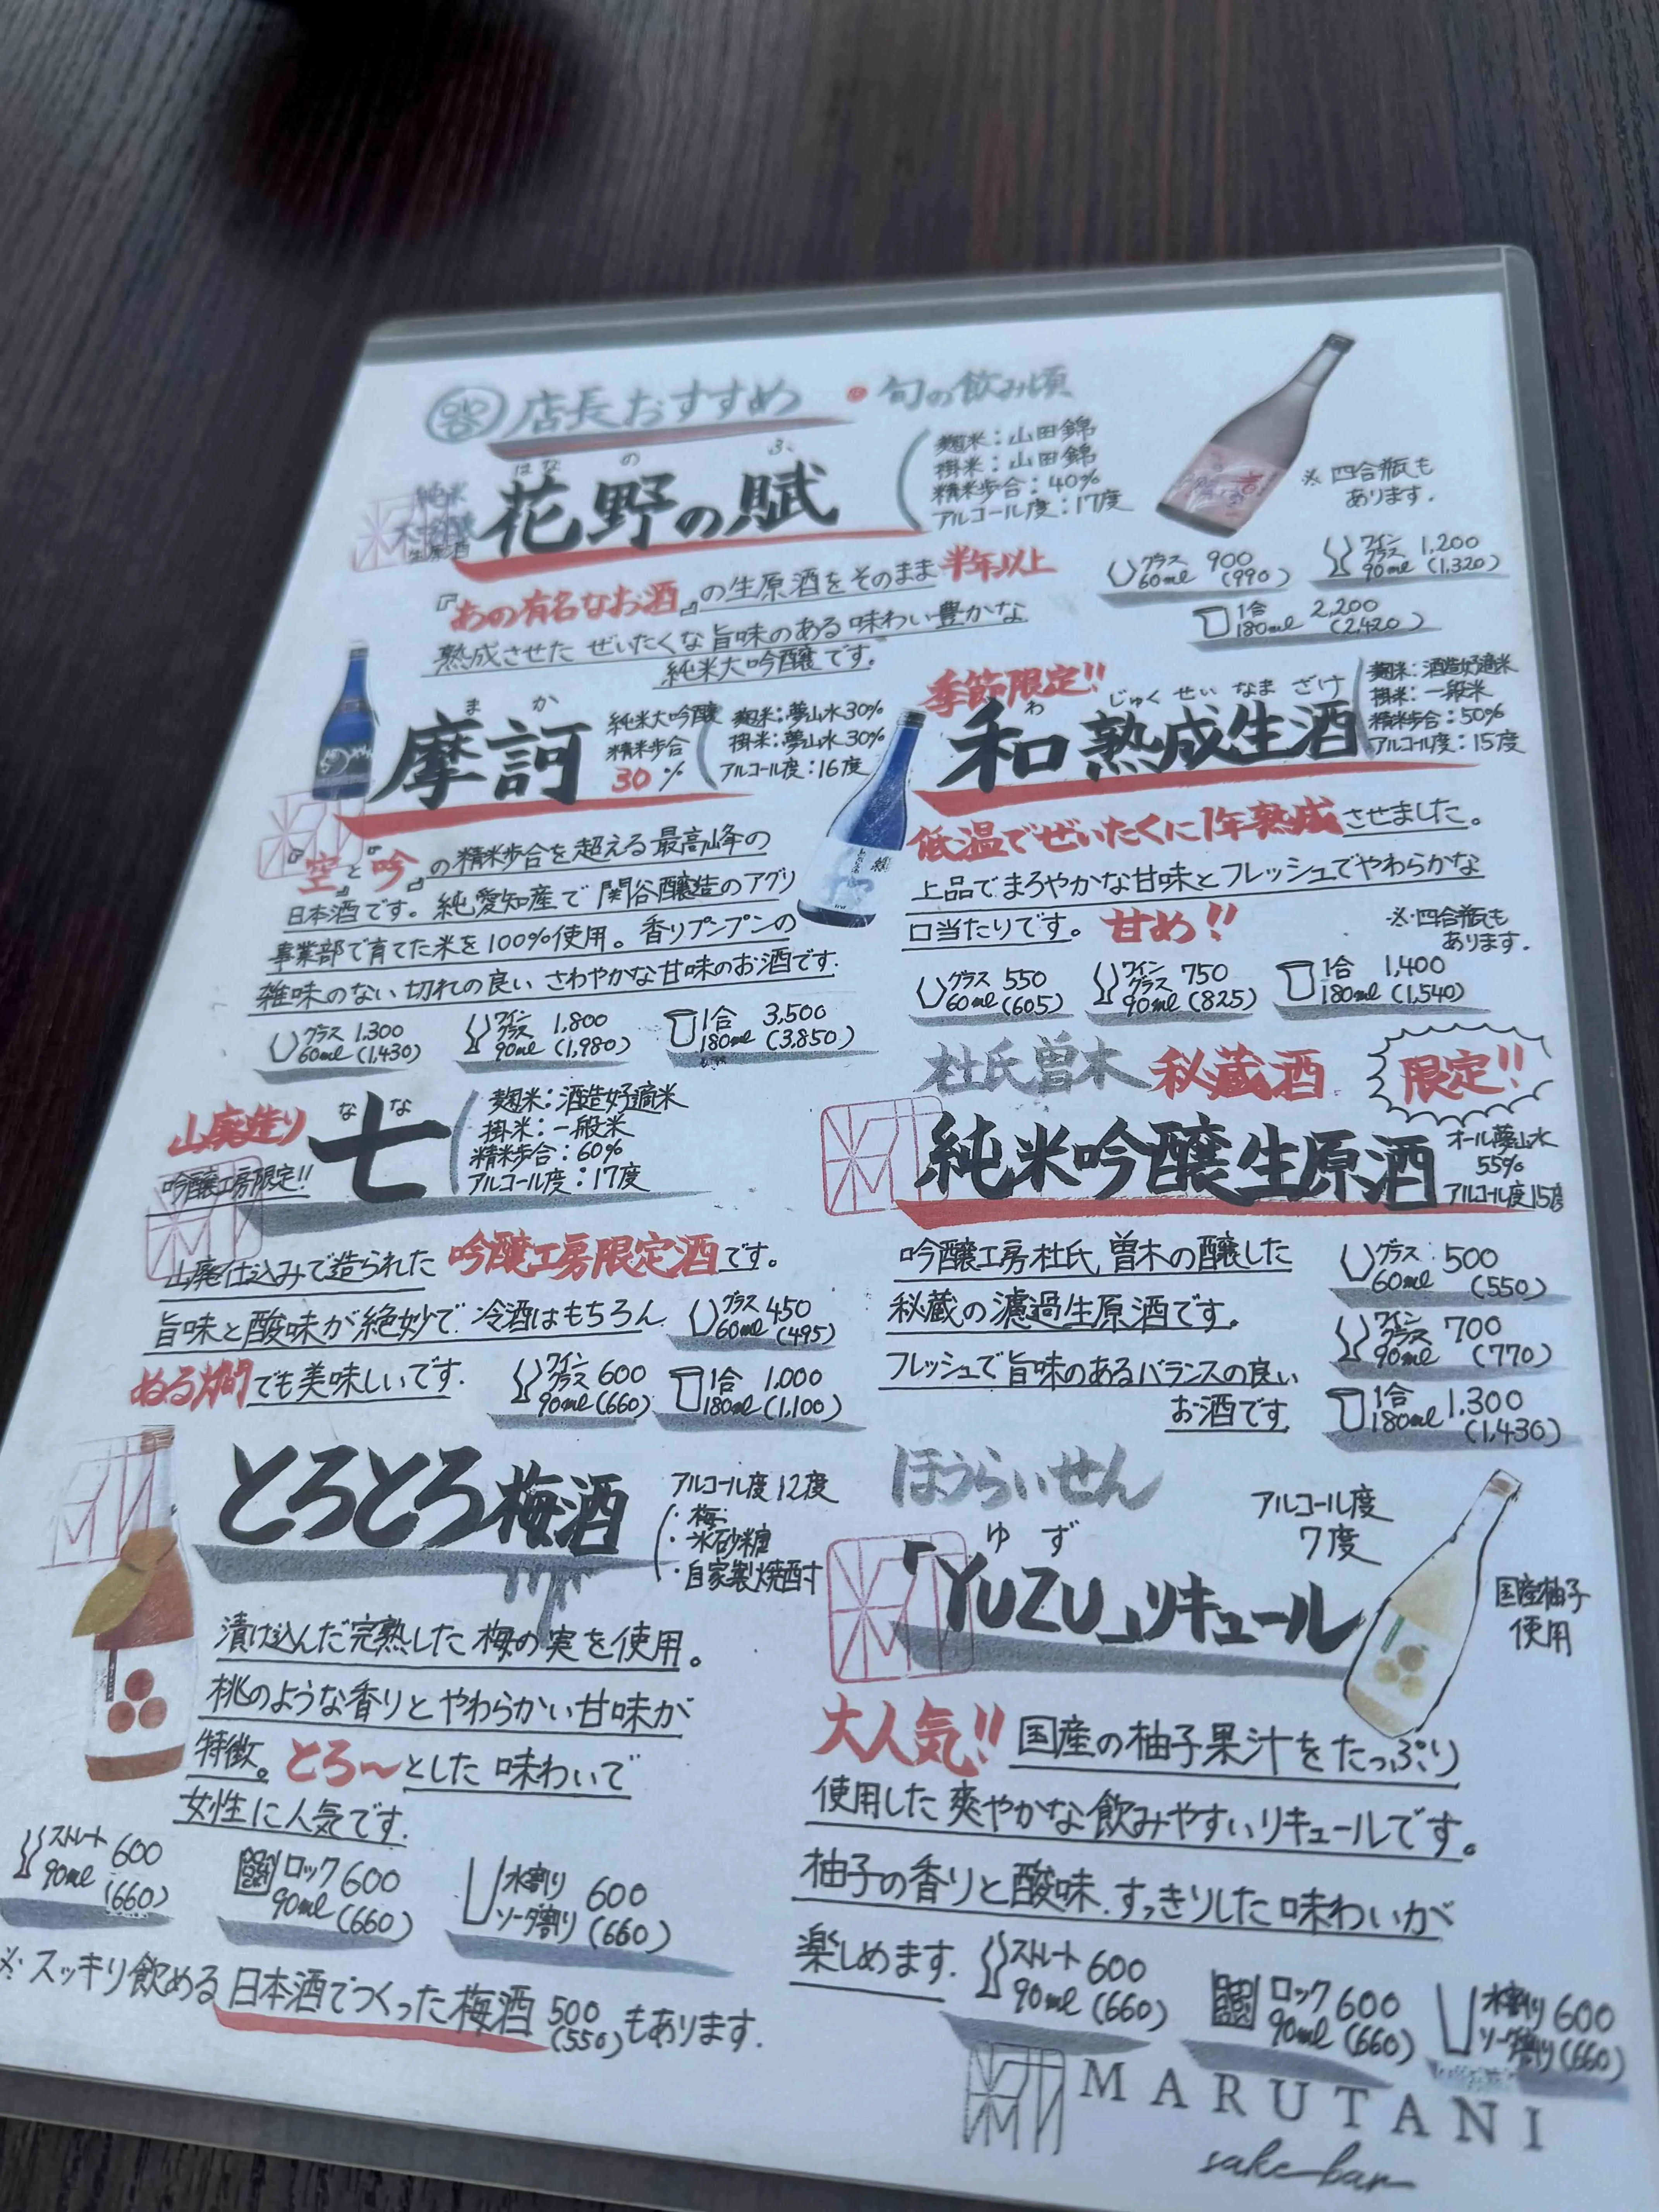 店長おすすめ ・旬の飲み頃
純米
大吟醸
生原酒
はな の ふ
花野の賦
麹米：山田錦
掛米：山田錦
精米歩合：40%
アルコール度：17度
※ 四合瓶も
あります.
グラス 900
60ml (990)
ワイン
グラス 1,200
90ml (1,320)
1合 2,200
180ml (2,420)
『あの有名なお酒』の生原酒をそのまま半年以上
熟成させた ぜいたくな旨味のある味わい豊かな
純米大吟醸です.
ま か
摩訶
純米大吟醸
精米歩合
30%
麹米：夢山水30%
掛米：夢山水30%
アルコール度：16度
『空』と『吟』の精米歩合を超える最高峰の
日本酒です。純愛知産で関谷醸造のアグリ
事業部で育てた米を100%使用。香りプンプンの
雑味のない切れの良いさわやかな甘味のお酒です.
グラス 1,300
60ml (1,430)
ワイン
グラス 1,800
90ml (1,980)
1合 3,500
180ml (3,850)
季節限定!!
わ じゅく せい なま ざけ
和 熟成生酒
麹米：酒造好適米
掛米：一般米
精米歩合：50%
アルコール度：15度
低温でぜいたくに1年熟成させました。
上品でまろやかな甘味とフレッシュでやわらかな
口当たりです。甘め!!
※四合瓶も
あります.
グラス 550
60ml (605)
ワイン
グラス 750
90ml (825)
1合 1,400
180ml (1,540)
山廃造り
吟醸工房限定!!
な な
七
麹米：酒造好適米
掛米：一般米
精米歩合：60%
アルコール度：17度
山廃仕込みで造られた 吟醸工房限定酒です。
旨味と酸味が絶妙で冷酒はもちろん
ぬる燗でも美味しいです.
グラス 450
60ml (495)
ワイン
グラス 600
90ml (660)
1合 1,000
180ml (1,100)
杜氏曽木 秘蔵酒
限定!!
純米吟醸生原酒
オール夢山水
55%
アルコール度15度
吟醸工房杜氏 曽木の醸した
秘蔵の濾過生原酒です。
フレッシュで旨味のあるバランスの良い
お酒です.
グラス 500
60ml (550)
ワイン
グラス 700
90ml (770)
1合 1,300
180ml (1,430)
とろとろ梅酒
アルコール度12度
・梅
・氷砂糖
・自家製焼酎
漬け込んだ完熟した梅の実を使用。
桃のような香りとやわらかい甘味が
特徴。とろ〜とした味わいで
女性に人気です.
ストレート 600
90ml (660)
ロック 600
90ml (660)
水割り 600
ソーダ割り (660)
※スッキリ飲める日本酒でつくった梅酒 500 (550) もあります.
ほうらいせん
ゆ ず
「YUZU」リキュール
アルコール度
7度
国産柚子
使用
大人気!! 国産の柚子果汁をたっぷり
使用した爽やかな飲みやすいリキュールです。
柚子の香りと酸味.すっきりした味わいが
楽しめます.
ストレート 600
90ml (660)
ロック 600
90ml (660)
水割り 600
ソーダ割り (660)
MARUTANI
sake bar